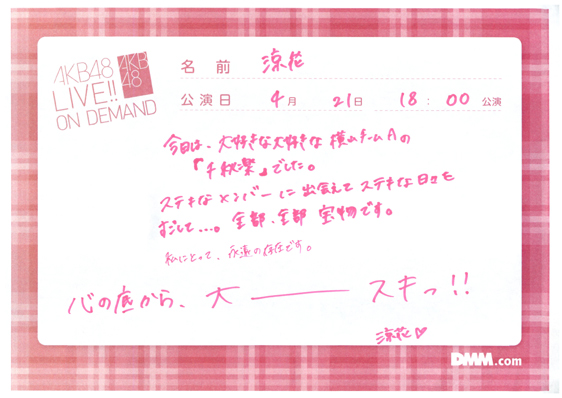 AKB48
LIVE!!
ON DEMAND
AKB
48
名前 涼花
公演日 4月 21日 18:00 公演
今日は、大好きな大好きな横山チームAの
『千秋楽』でした。
ステキなメンバーに出会えてステキな日々を
すごして…。全部、全部宝物です。
私にとって、永遠の存在です。
心の底から、大――スキっ!!
涼花♡
DMM.com